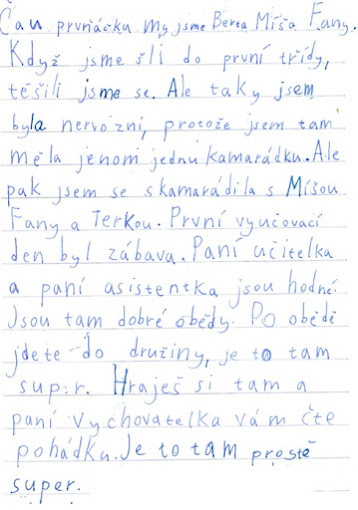 Čau prvňáčku my jsme Berča Míša Fany.
Když jsme šli do první třídy,
těšili jsme se. Ale taky jsem
byla nervózní, protože jsem tam
měla jenom jednu kamarádku. Ale
pak jsem se skamarádila s Míšou
Fany a Terkou. První vyučovací
den byl zábava. Paní učitelka
a paní asistentka jsou hodné.
Jsou tam dobré obědy. Po obědě
jdete do družiny, je to tam
super. Hraješ si tam a
paní vychovatelka vám čte
pohádku. Je to tam prostě
super.